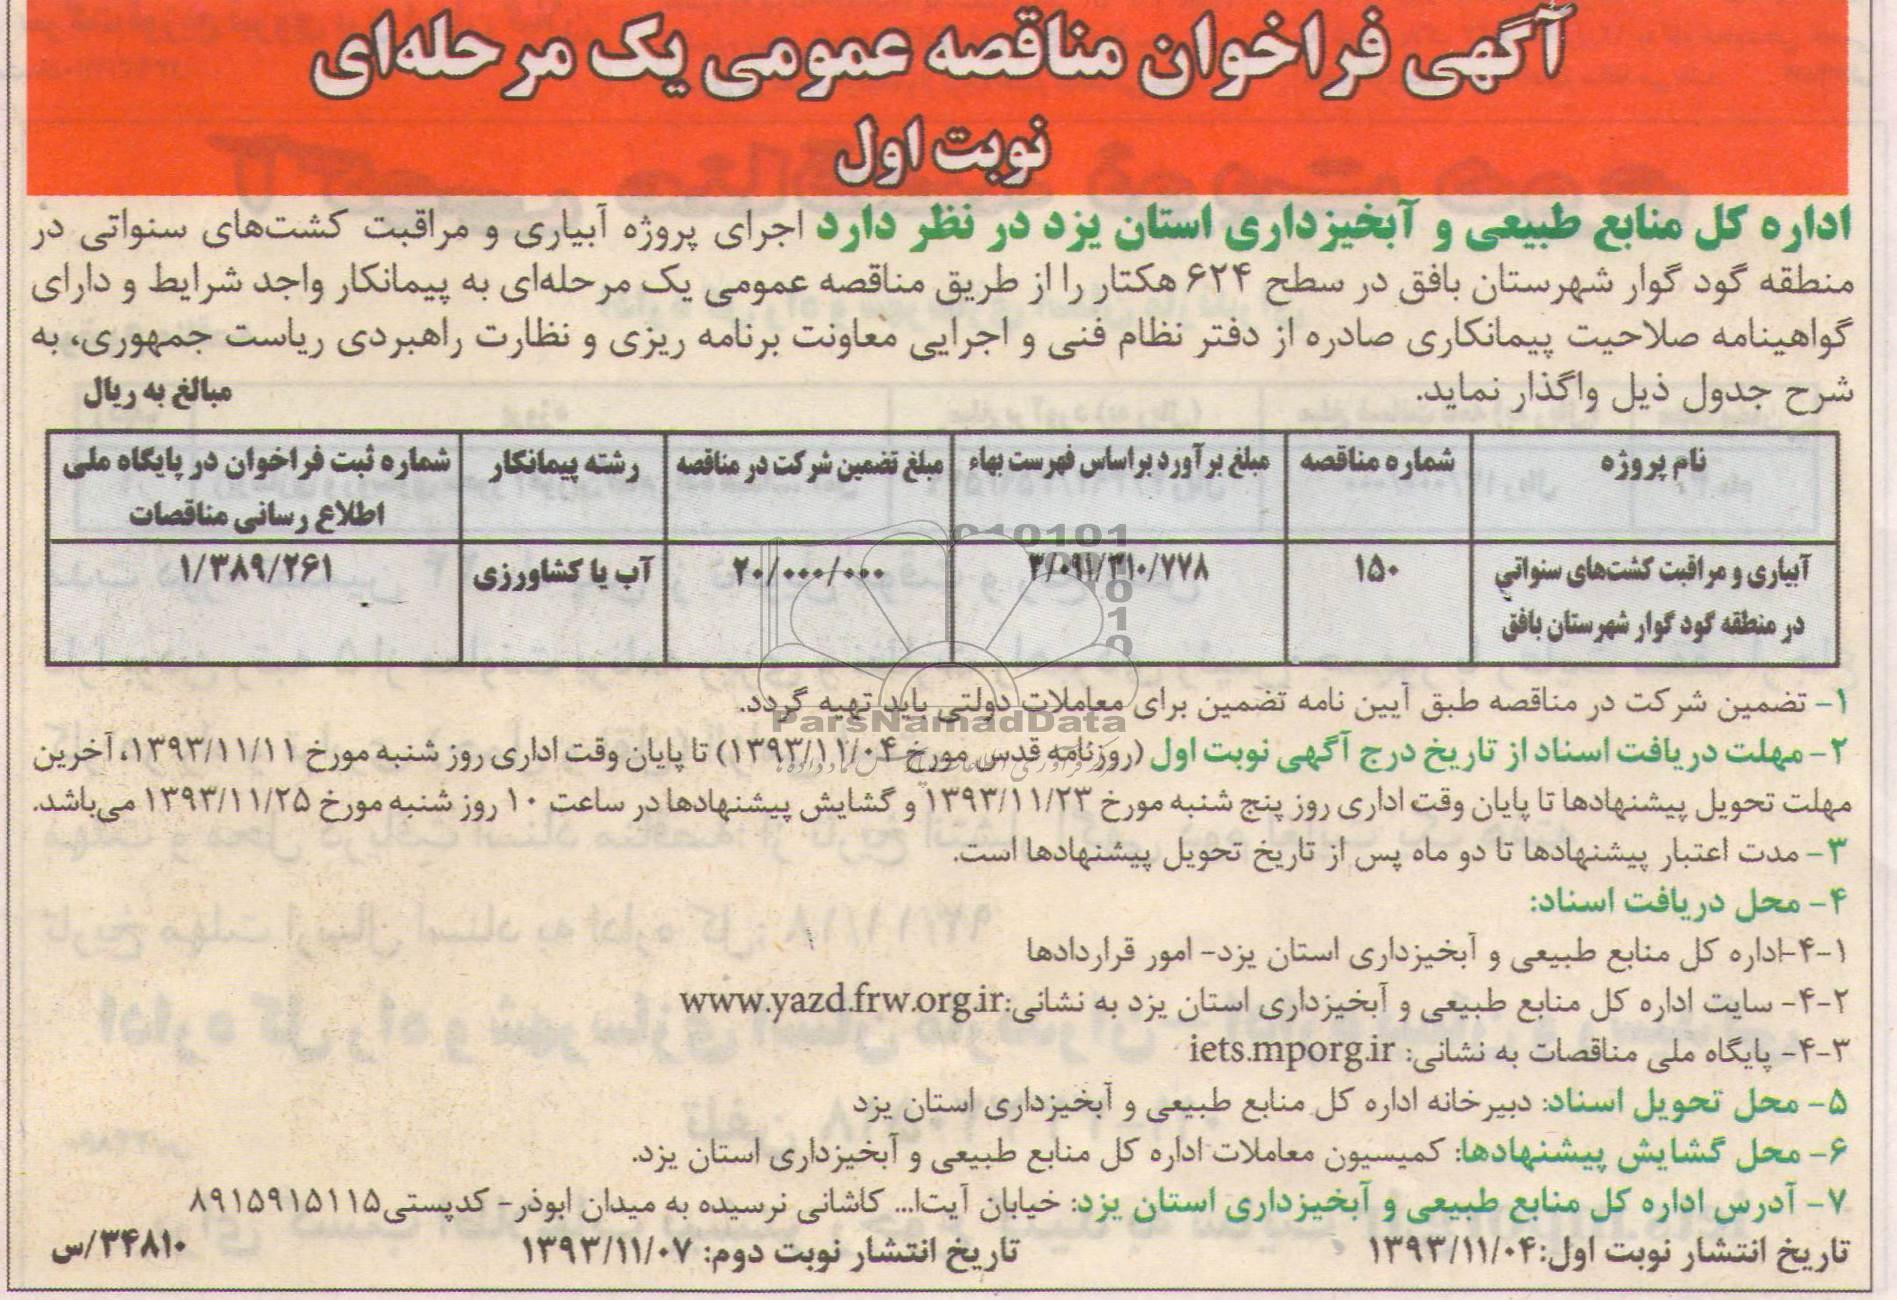 آگهی فراخوان مناقصه عمومی یک مرحله‌ای
نوبت اول
اداره کل منابع طبیعی و آبخیزداری استان یزد در نظر دارد اجرای پروژه آبیاری و مراقبت کشت‌های سنواتی در
منطقه گود گوار شهرستان بافق در سطح ۶۲۴ هکتار را از طریق مناقصه عمومی یک مرحله‌ای به پیمانکار واجد شرایط و دارای
گواهینامه صلاحیت پیمانکاری صادره از دفتر نظام فنی و اجرایی معاونت برنامه ریزی و نظارت راهبردی ریاست جمهوری، به
شرح جدول ذیل واگذار نماید.
مبالغ به ریال
نام پروژه
شماره مناقصه
مبلغ برآورد براساس فهرست بهاء
مبلغ تضمین شرکت در مناقصه
رشته پیمانکار
شماره ثبت فراخوان در پایگاه ملی
اطلاع رسانی مناقصات
آبیاری و مراقبت کشت‌های سنواتی
در منطقه گود گوار شهرستان بافق
۱۵۰
۳/۰۹۱/۳۱۰/۷۷۸
۲۰/۰۰۰/۰۰۰
آب یا کشاورزی
۱/۳۸۹/۲۶۱
ParsNamadData
۱- تضمین شرکت در مناقصه طبق آیین نامه تضمین برای معاملات دولتی باید تهیه گردد.
۲- مهلت دریافت اسناد از تاریخ درج آگهی نوبت اول (روزنامه قدس مورخ ۱۳۹۳/۱۱/۰۴) تا پایان وقت اداری روز شنبه مورخ ۱۳۹۳/۱۱/۱۱، آخرین
مهلت تحویل پیشنهادها تا پایان وقت اداری روز پنج شنبه مورخ ۱۳۹۳/۱۱/۲۳ و گشایش پیشنهادها در ساعت ۱۰ روز شنبه مورخ ۱۳۹۳/۱۱/۲۵ می‌باشد.
۳- مدت اعتبار پیشنهادها تا دو ماه پس از تاریخ تحویل پیشنهادها است.
۴- محل دریافت اسناد:
۴-۱-اداره کل منابع طبیعی و آبخیزداری استان یزد- امور قراردادها
۴-۲- سایت اداره کل منابع طبیعی و آبخیزداری استان یزد به نشانی:www.yazd.frw.org.ir
۴-۳- پایگاه ملی مناقصات به نشانی: iets.mporg.ir
۵- محل تحویل اسناد: دبیرخانه اداره کل منابع طبیعی و آبخیزداری استان یزد
۶- محل گشایش پیشنهادها: کمیسیون معاملات اداره کل منابع طبیعی و آبخیزداری استان یزد.
۷- آدرس اداره کل منابع طبیعی و آبخیزداری استان یزد: خیابان آیت‌ا... کاشانی نرسیده به میدان ابوذر- کدپستی۸۹۱۵۹۱۵۱۱۵
تاریخ انتشار نوبت اول:۱۳۹۳/۱۱/۰۴
تاریخ انتشار نوبت دوم: ۱۳۹۳/۱۱/۰۷
۳۴۸۱۰/س